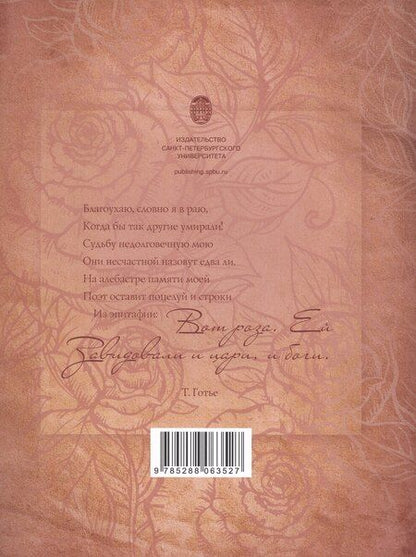 ИЗДАТЕЛЬСТВО
САНКТ-ПЕТЕРБУРГСКОГО
УНИВЕРСИТЕТА
publishing.spbu.ru
Благоухаю, словно я в раю,
Когда бы так другие умирали!
Судьбу недолговечную мою
Они несчастной назовут едва ли.
На алебастре памяти моей
Поэт оставит поцелуй и строки
Из эпитафии: Вот роза. Ей
Завидовали и цари, и боги.
Т. Готье
9 785288 063527